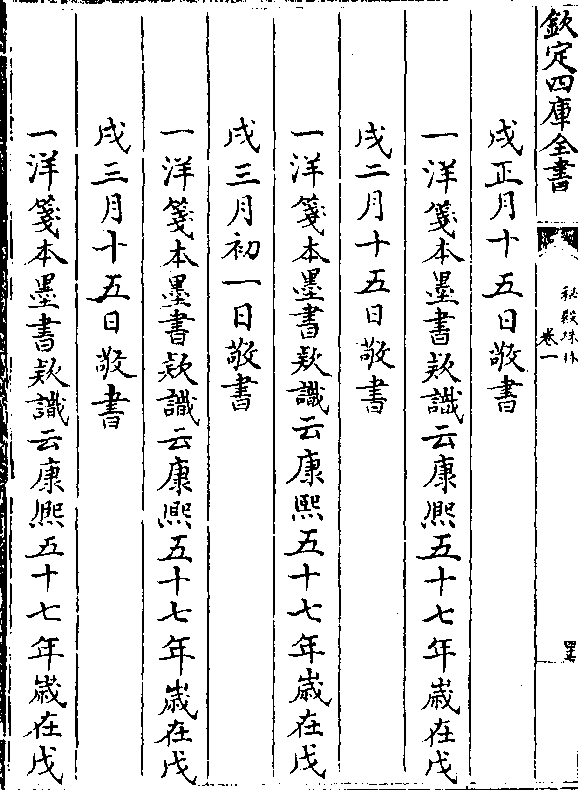 欽定四庫全書
秘殿珠林
卷一
戌正月十五日敬書
一洋箋本墨書款識云康熙五十七年歲在戊
戌二月十五日敬書
一洋箋本墨書款識云康熙五十七年歲在戊
戌三月初一日敬書
一洋箋本墨書款識云康熙五十七年歲在戊
戌三月十五日敬書
一洋箋本墨書款識云康熙五十七年歲在戊